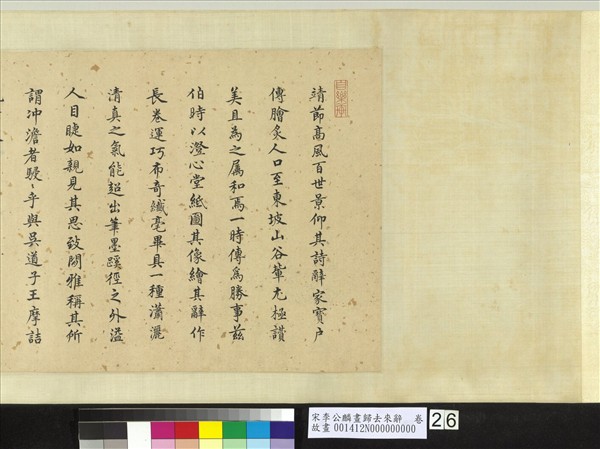 靖節高風百世景仰其詩辭家寶戶
傳膾炙人口至東坡山谷輩尤極讚
美且為之屬和焉一時傳為勝事茲
伯時以澄心堂紙圖其像繪其辭作
長卷運巧布奇纖毫畢具一種瀟灑
清真之氣能超出筆墨蹊徑之外溢
人目睫如親見其思致閒雅稱其所
謂沖澹者駸〻乎與吳道子王摩詰
宋李公麟畫歸去來辭 卷
故畫001412N000000000
26